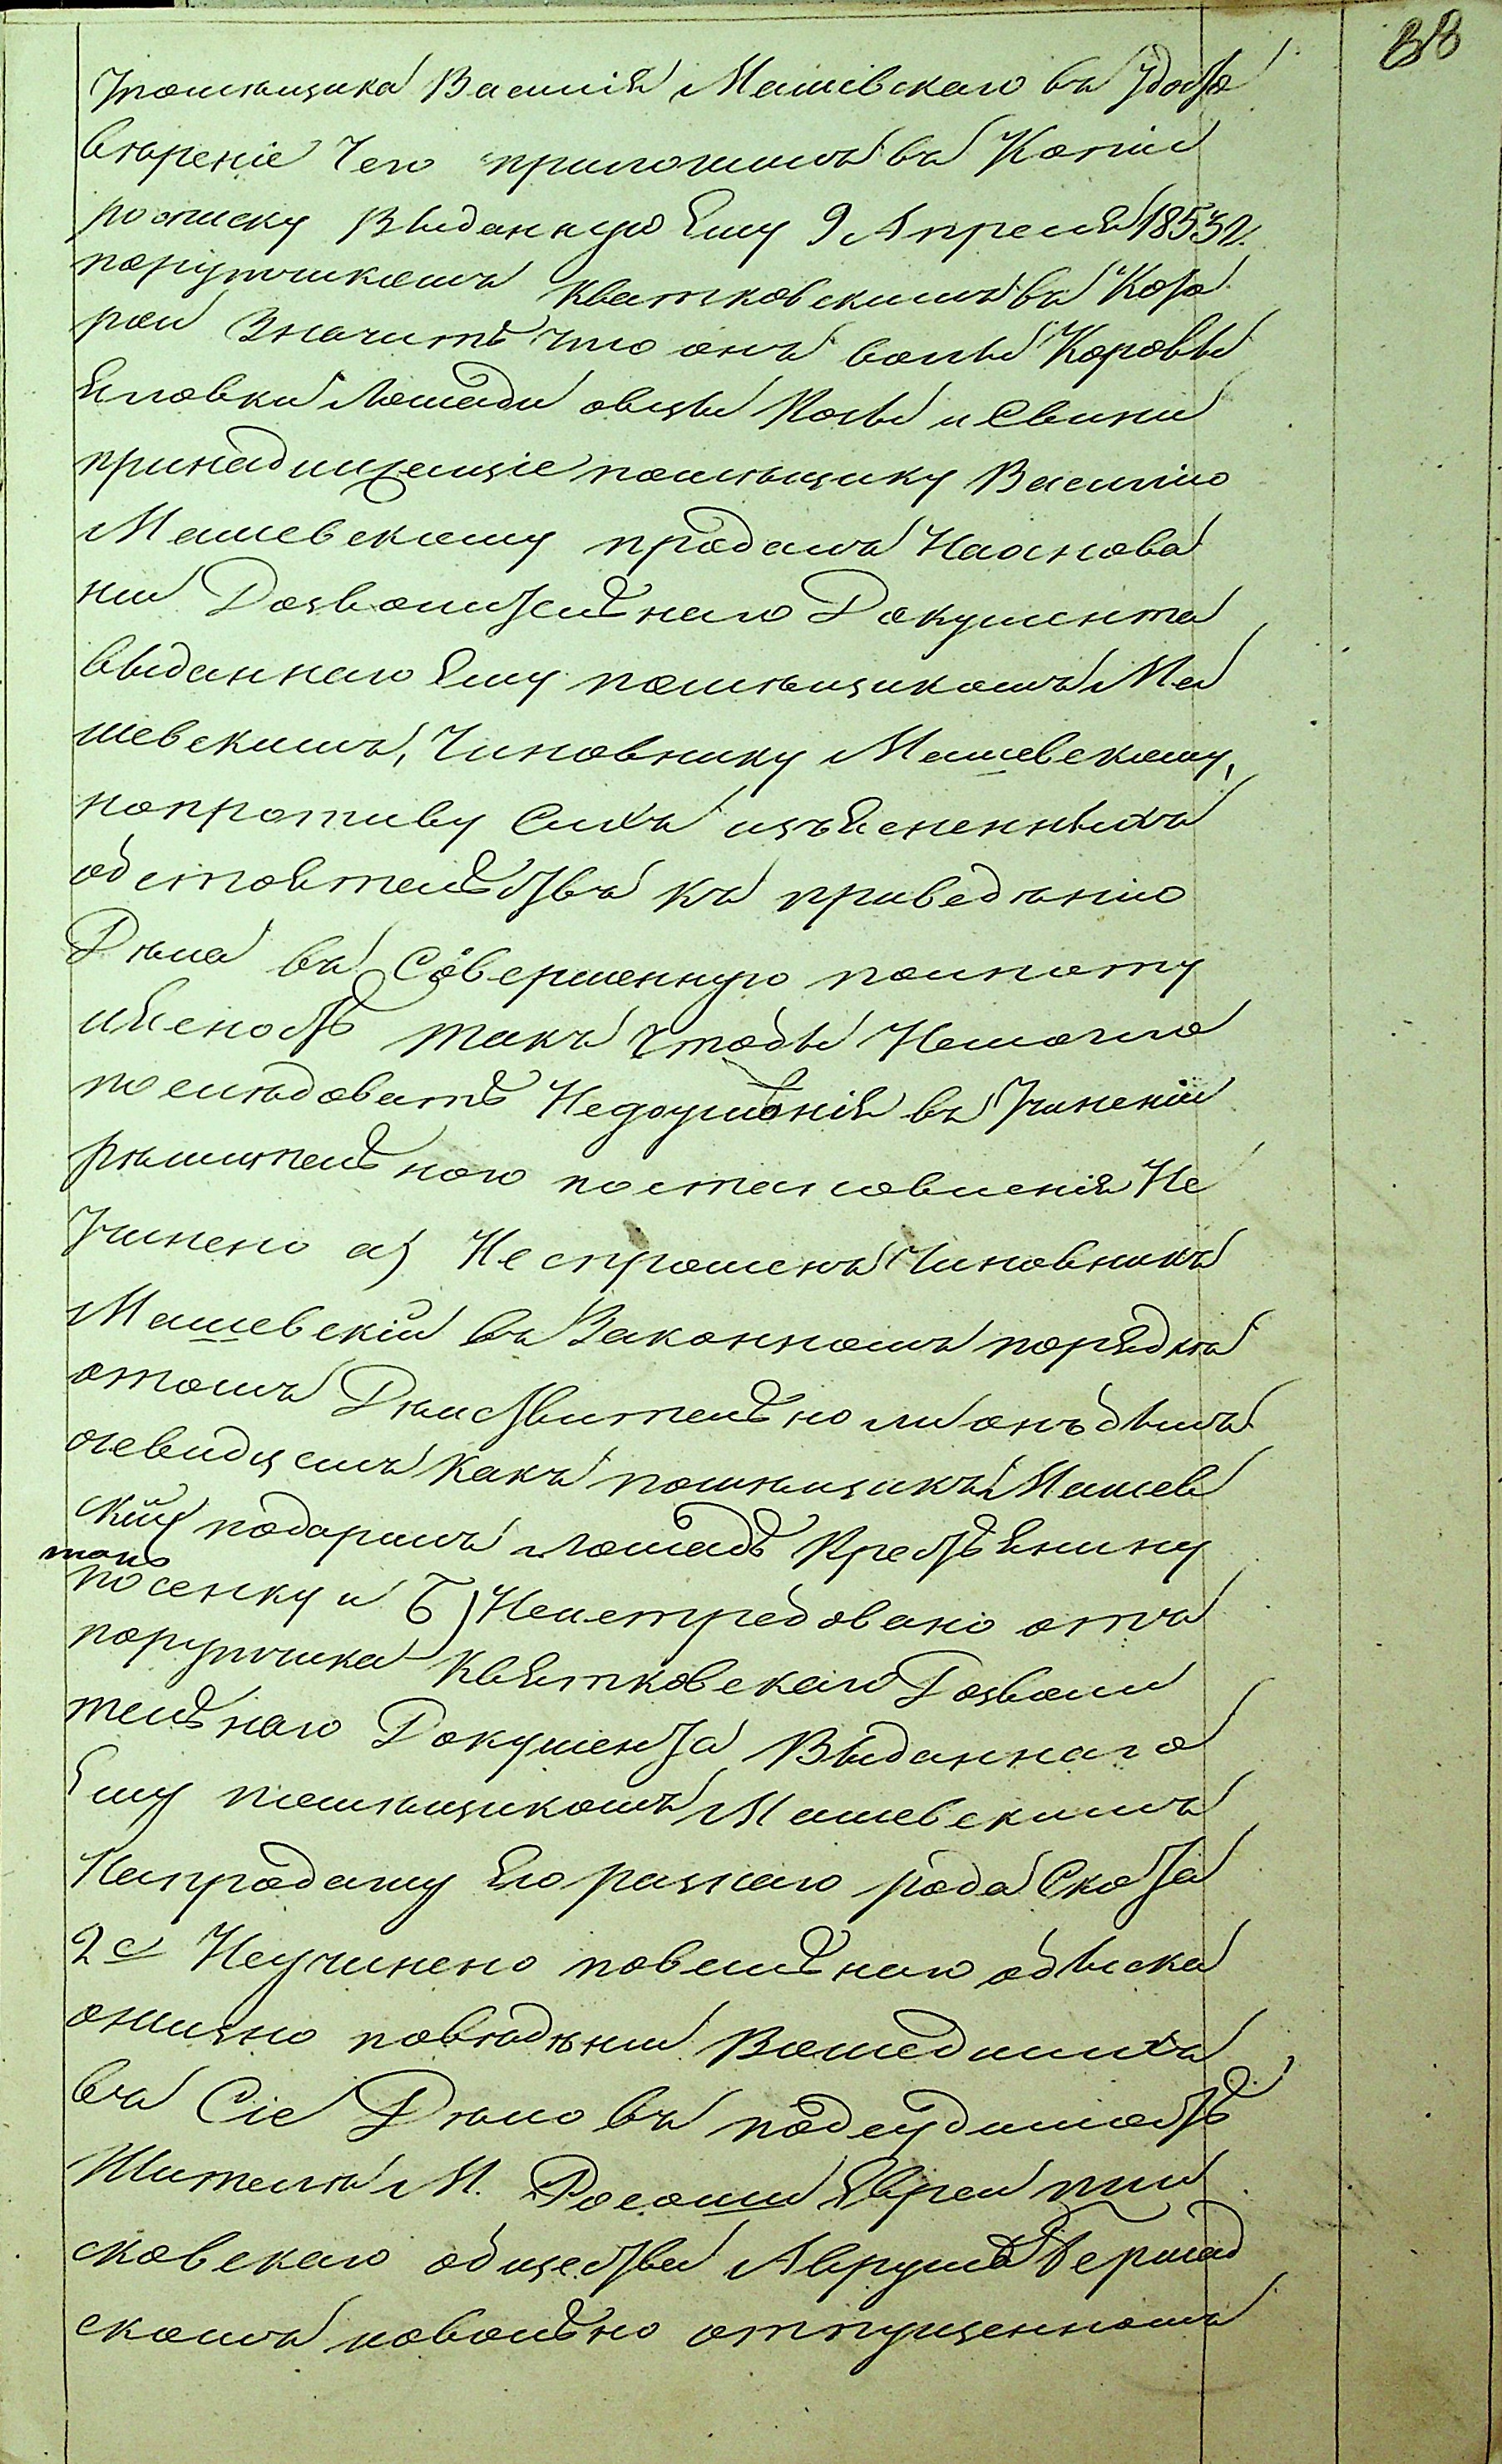 38
Упомѣщика Василія Машевскаго въ удосто
вѣреніе чего приложилъ въ копіи
росписку выданную ему 9 Апреля 1853 г.
порутчикомъ Квятковскимъ въ кото
рой значитъ что онъ волы коровы
Яловки лошади овцы козы и свини
принадлежащіе помѣщику Василію
Машевскому продалъ На основа
ніи Дозволительнаго Документа
выданнаго Ему помѣщикомъ Ма
шевскимъ, Чиновнику Машевскому,
напротиву Сихъ изъясненныхъ
обстоятельствъ къ приведѣнію
Дѣла въ Совершенную полноту
и ясность такъ чтобы Немогло
послѣдовать Недоумѣнія въ Учиненіи
рѣшительного постановленія Не
Учинено а) Не спрошенъ Чиновникъ
Машевскій въ Законномъ порядкѣ
отомъ Дѣйствительно ли онъ былъ
очевидцемъ какъ помѣщикъ Машев
скій подарилъ лошадь Крестьянину
посенку и Б) Неистребовано отъ
порутчика Квятковскаго Дозволи
тельнаго Документа Выданнаго
Ему помѣщикомъ Машевскимъ
Напродажу Его разнаго рода Скота
2е Неучинено повальнаго обыска
ожизно повѣдѣніи Вошедшихъ
въ Сіе Дѣло въ подсудимость
Жителѣ М. Росоши Евреи пии
сковскаго общества Аврумѣ Бершад
скомъ повольно отпущенномъ